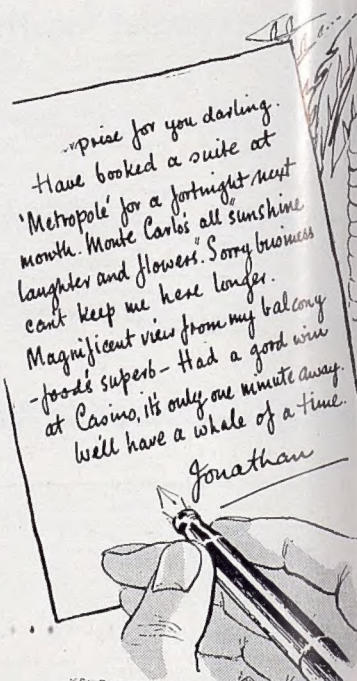 prise for you darling.
Have booked a suite at
'Metropole' for a fortnight next
month. Monte Carlo's all "sunshine
laughter and flowers". Sorry business
can't keep me here longer.
Magnificent view from my balcony
- food's superb - Had a good win
at Casino, it's only one minute away.
We'll have a whale of a time.
Jonathan